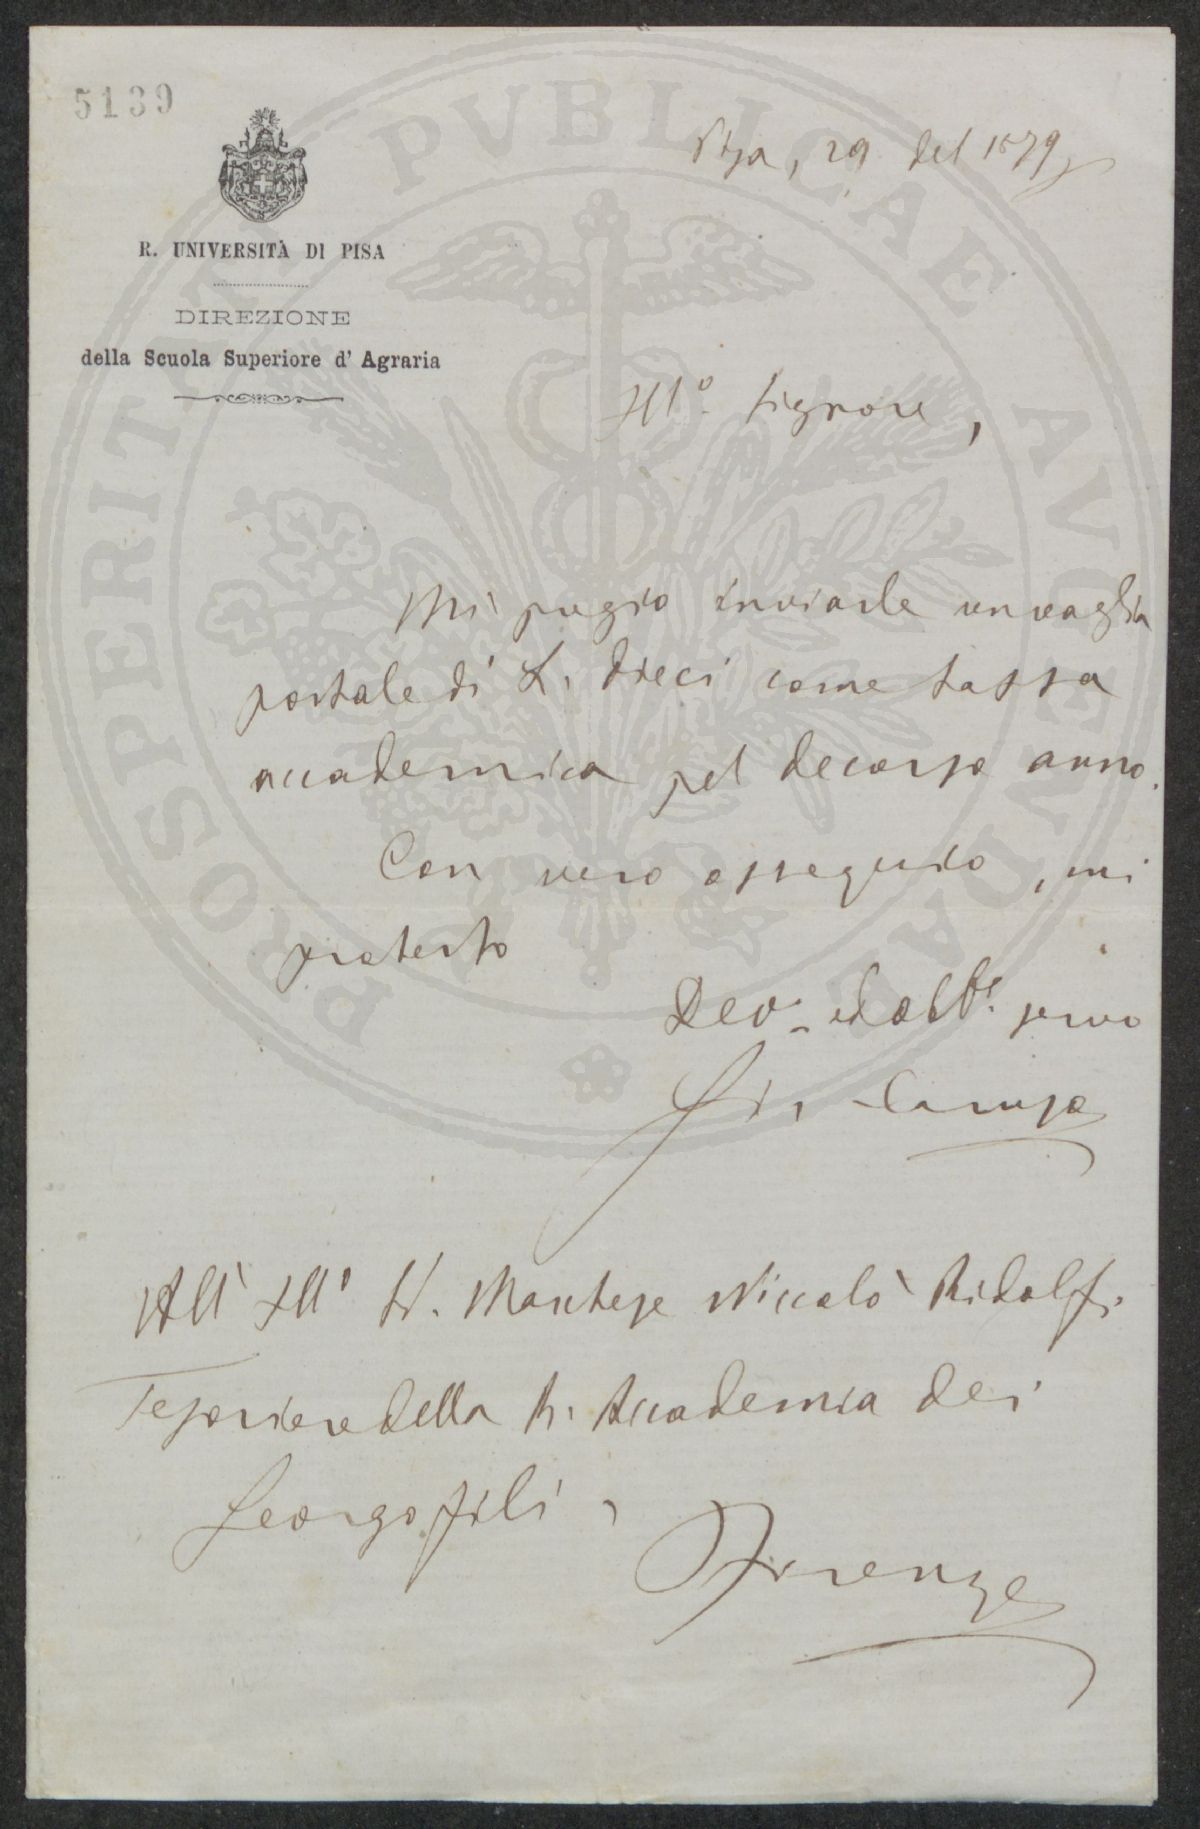 5139
R. UNIVERSITÀ DI PISA
DIREZIONE
della Scuola Superiore d' Agraria
Pisa, 29 del 1879
Ill.º Signore,
Mi pregio inviarle un vaglia
postale di L. Dieci come tassa
accademica pel decorso anno.
Con vero ossequio, mi
protesto
Dev. ed obb. servo
Caruso
All' Ill.º S. Marchese Niccolò Ridolfi.
Tesoriere della R. Accademia dei
Georgofili,
Firenze
PROSPERITATI PVBLICAE AVGENDAE